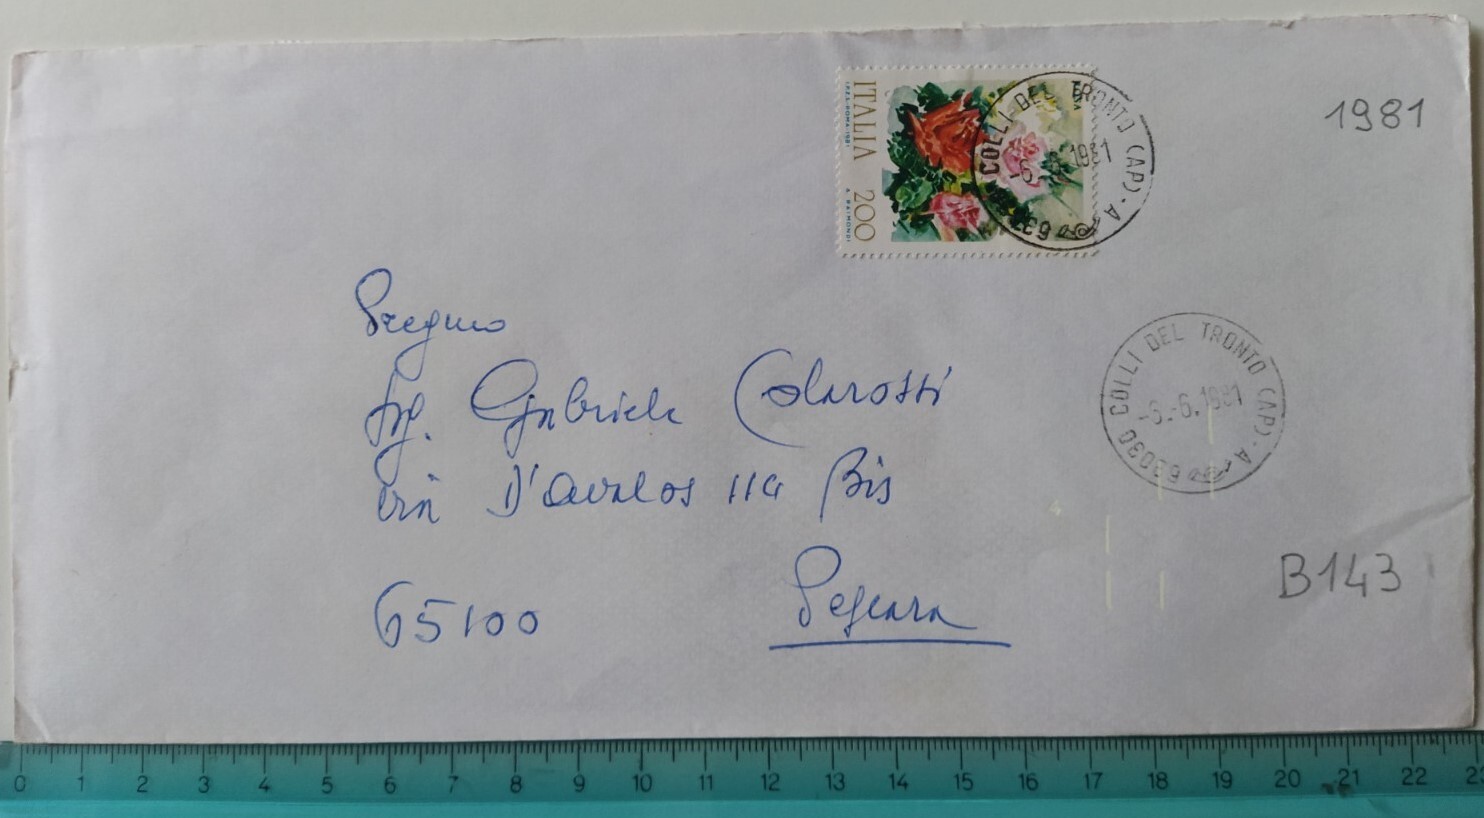 ITALIA 200
I.P.Z.S. ROMA 1981 A. RAIMONDI
COLLI DEL TRONTO (AP) - A
-6.-6.1981
630
1981
Pregmo
Ing. Gabriele Colarossi
via D'Avalos 114 Bis
65100 Pescara
63030 COLLI DEL TRONTO (AP) - A
-6.-6.1981
B143
0 1 2 3 4 5 6 7 8 9 10 11 12 13 14 15 16 17 18 19 20 21 22